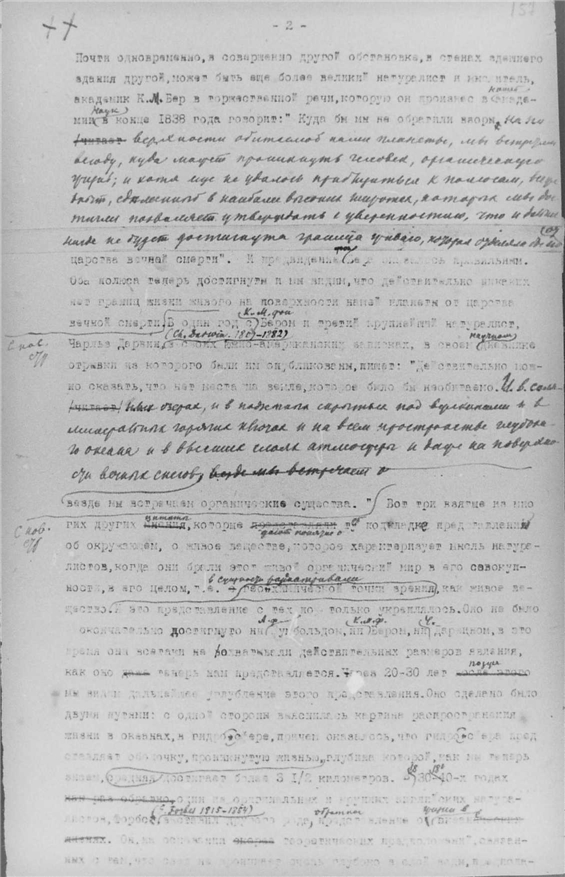 - 2 -
157
Почти одновременно, в совершенно другой обстановке, в стенах здешнего
здания другой, может быть еще более великий натуралист и мыслитель,
академик К.М. Бер в торжественной речи, которую он произнес в Акаде-
мии Наук в конце 1838 года говорит: "Куда бы мы не обратили взоры, на по
/читает/ верхности обитаемой нами планеты, мы встречаем
всюду, куда может проникнуть человек, органическую
жизнь; и хотя еще не удалось приблизиться к полюсам,
в наиболее высоких широтах, которых мы дос
тигли позволяет утверждать с уверенностью, что и
не будет достигнута граница живого, которая
царства вечной смерти". И предвидение Бера оказалось правильным.
Оба полюса теперь достигнуты и мы видим, что действительно никаких
нет границ жизни живого на поверхности нашей планеты от царства
вечной смерти. В один год с К.М. фон Бером и третий крупнейший натуралист,
(Ch. Darwin 1809-1882)
Чарльз Дарвин, в своих южно-американских записках, в своем научном дневнике
С нов.
стр
отрывки из которого были им опубликованы, пишет: "Действительно мож-
но сказать, что нет места на земле, которое было бы необитаемо. И в соля-
/читает/ ных озерах, и в подземных скрытых под вулканами и в
минеральных горячих ключах и на всем пространстве глубоко-
го океана и в высших слоях атмосферы и даже на поверхно
сти вечных снегов, везде мы встречаем о
везде мы встречаем органические существа." Вот три взятые из мно
С нов.
стр
гих других цитаты, которые дают понятие о той подкладке представлений
об окружающем, о живом веществе, которое характеризует мысль натура-
листов, когда они брали этот живой органический мир в его совокуп-
ности, в его целом, т.е. в сущности рассматривали с геохимической точки зрения, как живое ве-
щество. И это представление с тех пор только укреплялось. Оно не было
окончательно достигнуто ни А.ф. Гумбольдом, ни К.М.ф. Бером, ни Ч. Дарвином, в это
время они всетаки не охватывали действительных размеров явления,
как оно теперь нам представляется. Через 20-30 лет после этого позже
мы видим дальнейшее углубление этого представления. Оно сделано было
двумя путями: с одной стороны выяснилась картина распространения
жизни в океанах, в гидросфере, причем оказалось, что гидросфера пред
ставляет оболочку, проникнутую жизнью, глубина которой, как мы теперь
знаем, средняя достигает более 3 1/2 километров. В 30-40-х годах
один из оригинальных и крупных английских натура-
(E. Forbes 1815-1854)
листов, Форбс, выставил другого рода, представление о
Он, на основании теоретических предположений, связан-
ных с тем, что свет не проникает очень глубоко в слой воды, предпола-